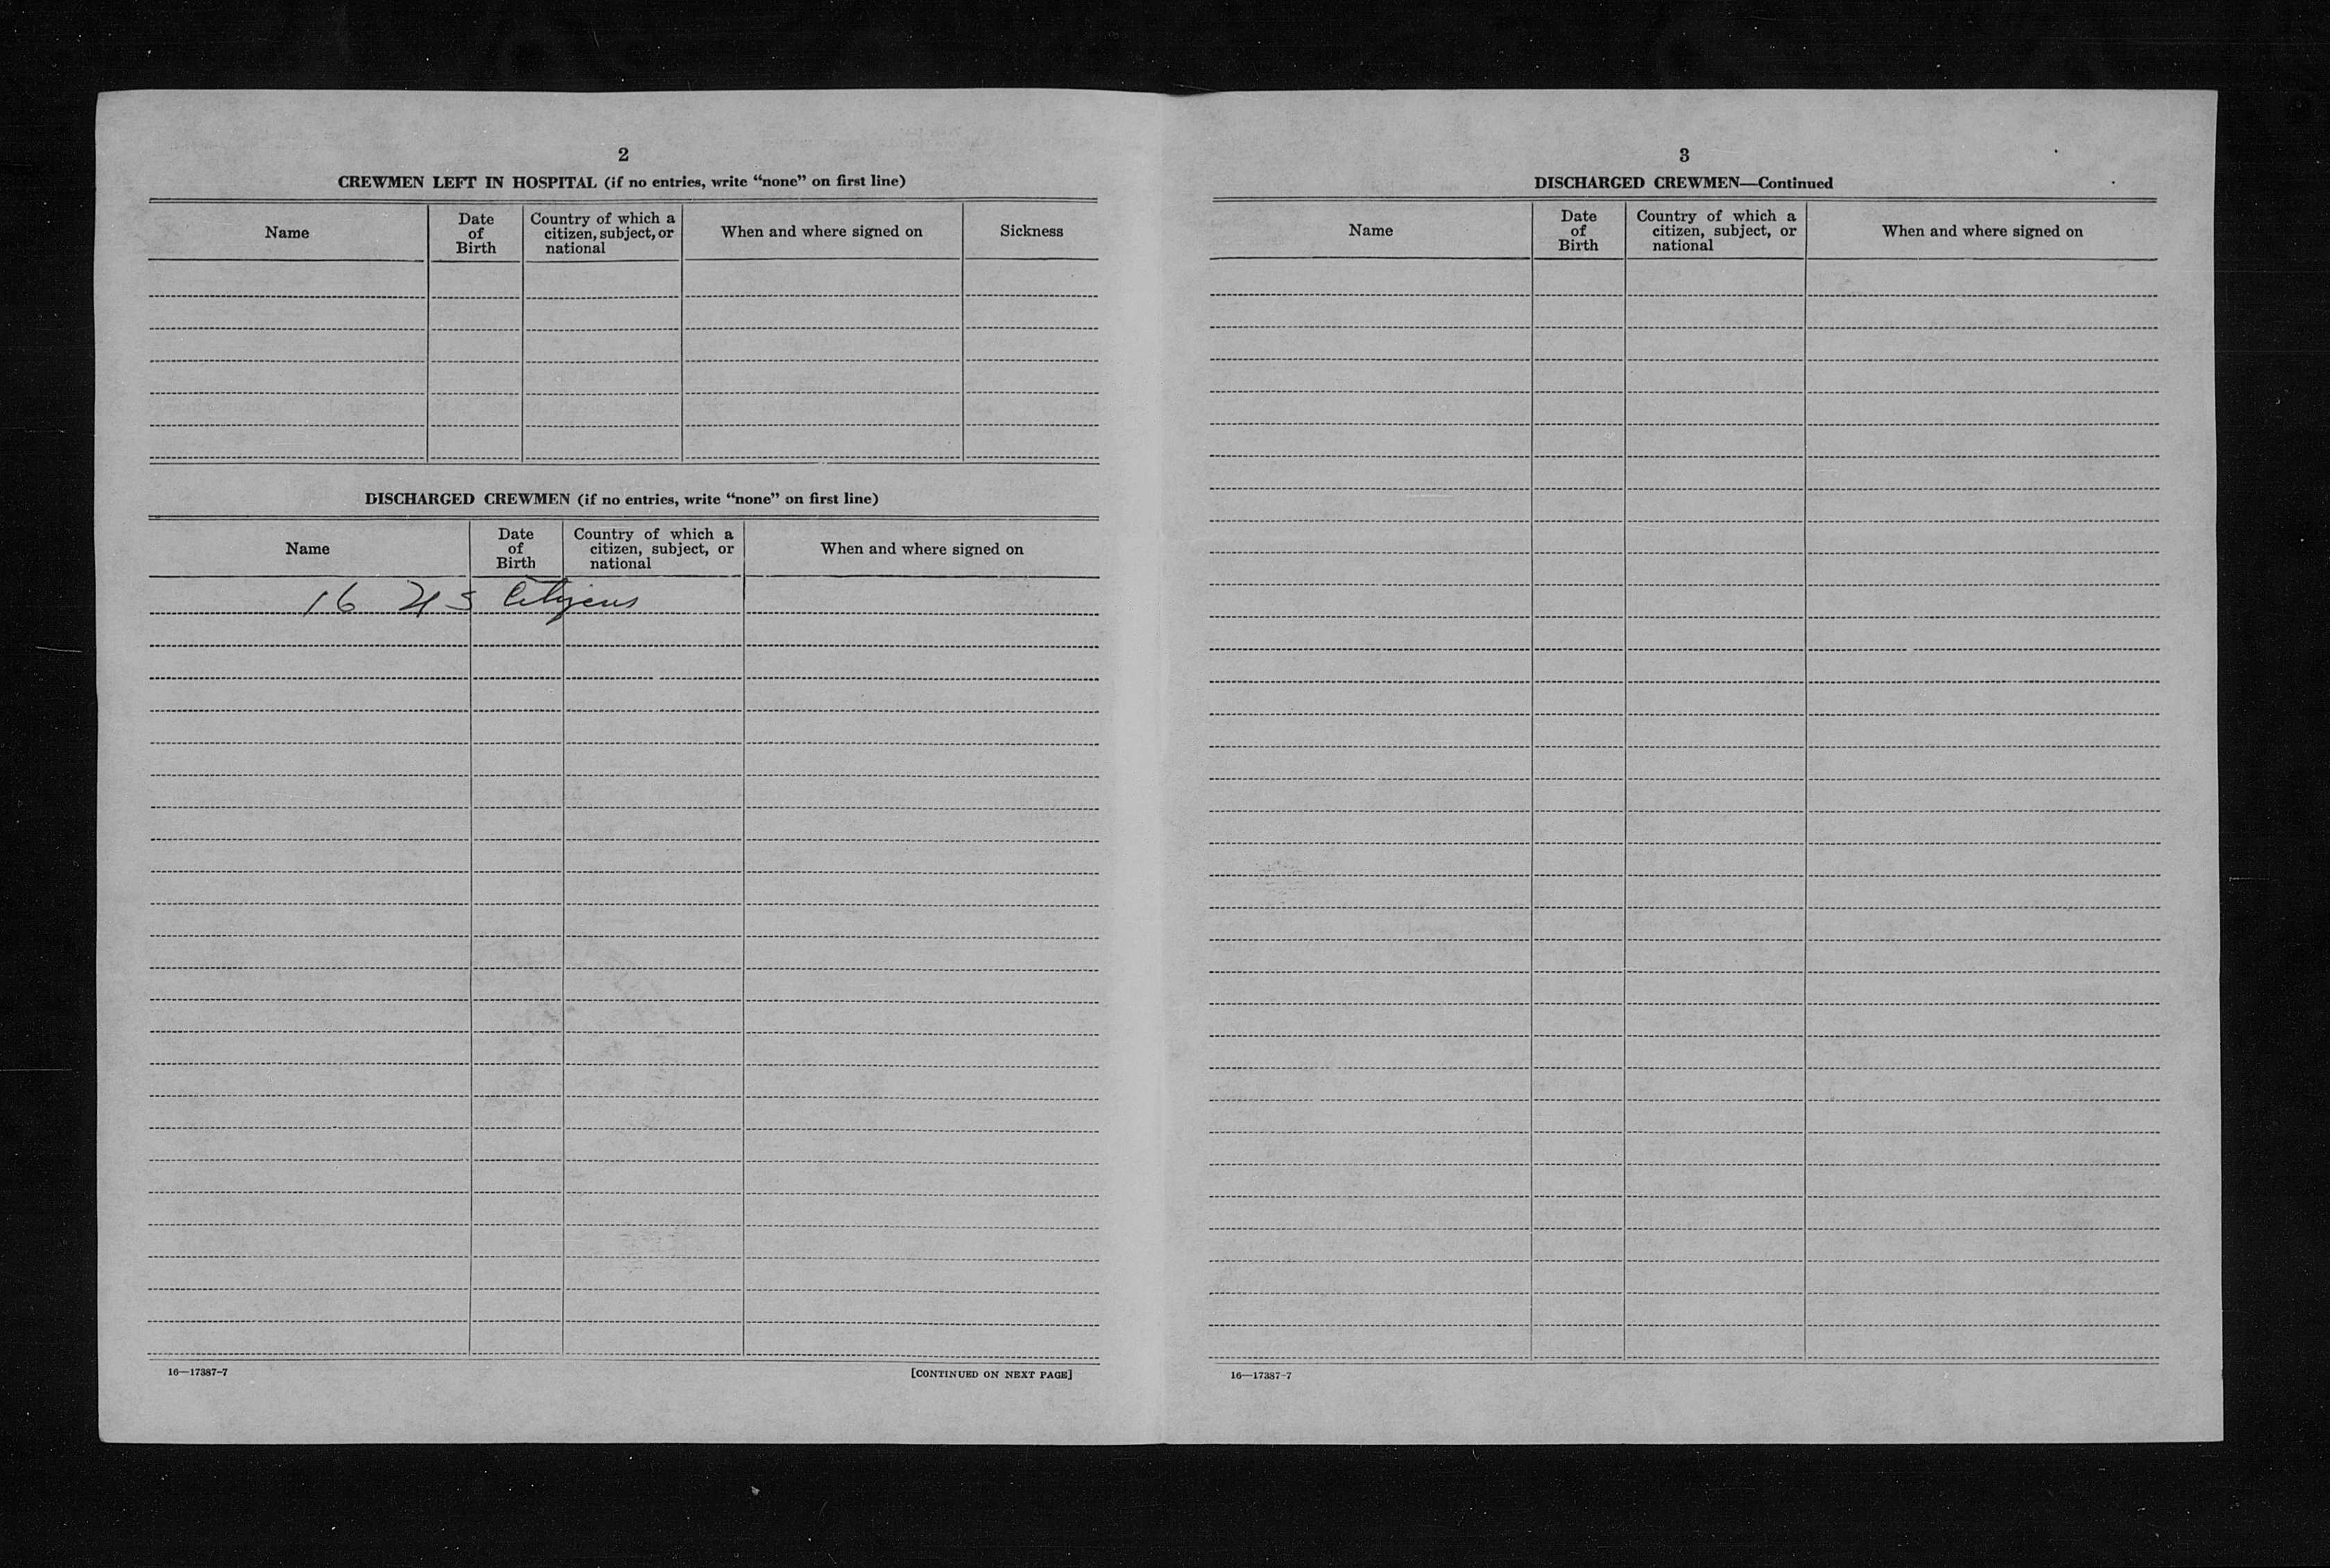 2
CREWMEN LEFT IN HOSPITAL (if no entries, write “none” on first line)
Name
Date of Birth
Country of which a citizen, subject, or national
When and where signed on
Sickness
DISCHARGED CREWMEN (if no entries, write “none” on first line)
Name
Date of Birth
Country of which a citizen, subject, or national
When and where signed on
16 US Citizens
16—17387-7
[CONTINUED ON NEXT PAGE]
3
DISCHARGED CREWMEN—Continued
Name
Date of Birth
Country of which a citizen, subject, or national
When and where signed on
16—17387-7